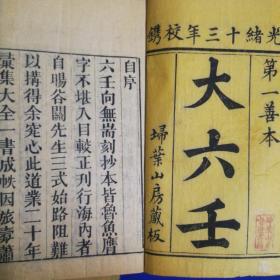 光緒十三年校鐫
第一善本
大六壬
埽葉山房藏板
自序
六壬向無崭刻抄本皆魯魚膺
字不堪入目較正刊行海內者
自暘谷關先生三式始路阻難
以搆得余寃心此道業二十年
彙集大全一書成帙因旅豪潚